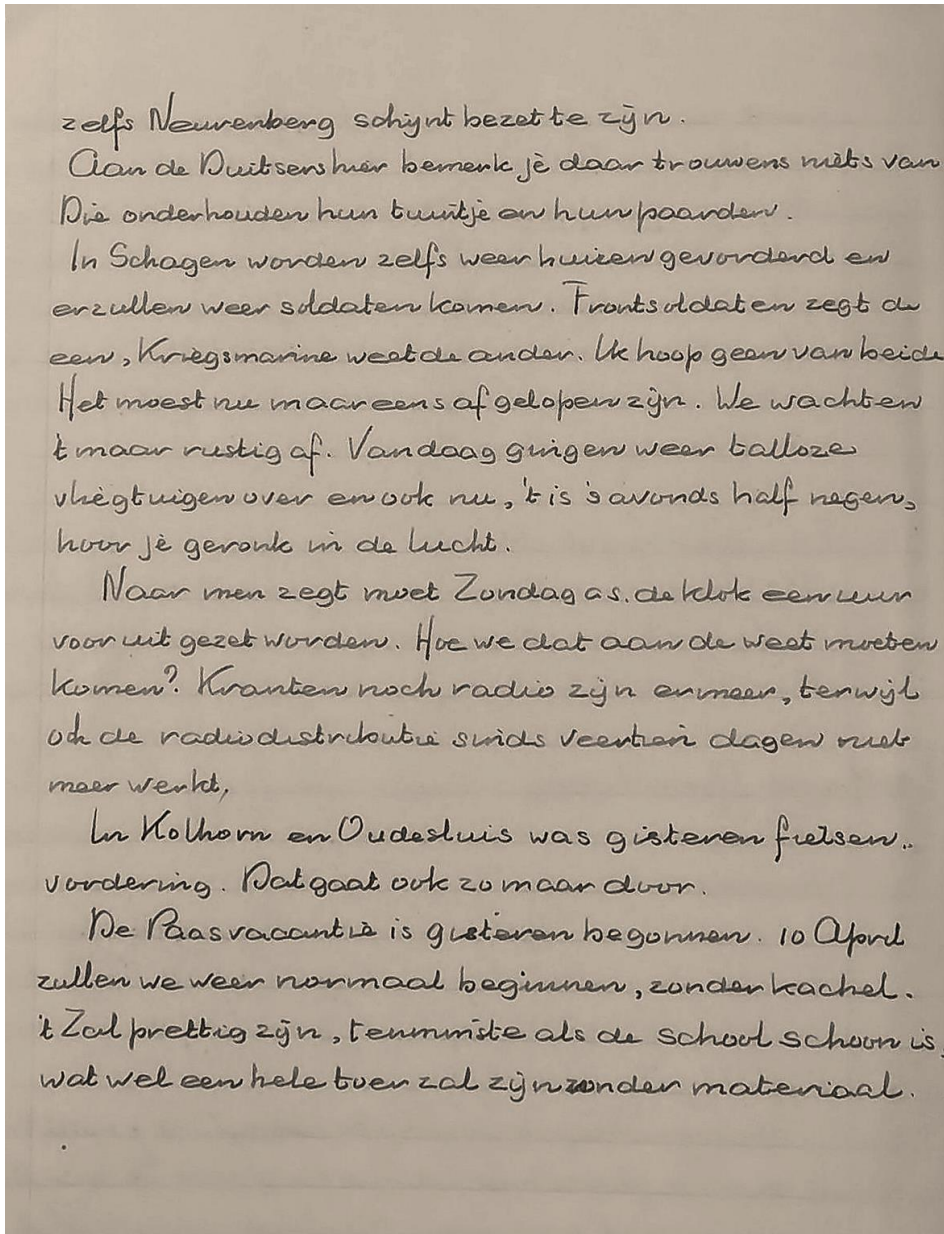 zelfs Neurenberg schijnt bezet te zijn.
Aan de Duitsers hier bemerk je daar trouwens niets van
Die onderhouden hun tuintje en hun paarden.
In Schagen worden zelfs weer huizen gevorderd en
er zullen weer soldaten komen. Frontsoldaten zegt de
een, Kriegsmarine weet de ander. Ik hoop geen van beide
Het moest nu maar eens afgelopen zijn. We wachten
't maar rustig af. Vandaag gingen weer talloze
vliegtuigen over en ook nu, 't is 's avonds half negen,
hoor je geronk in de lucht.
Naar men zegt moet Zondag a s. de klok een uur
vooruit gezet worden. Hoe we dat aan de weet moeten
komen? Kranten noch radio zijn er meer, terwijl
ook de radiodistributie sinds veertien dagen niet
meer werkt,
In Kolhorn en Oudesluis was gisteren fietsen..
vordering. Dat gaat ook zo maar door.
De Paasvacantie is gisteren begonnen. 10 April
zullen we weer normaal beginnen, zonder kachel.
't Zal prettig zijn, tenminste als de school schoon is,
wat wel een hele toer zal zijn zonder materiaal.